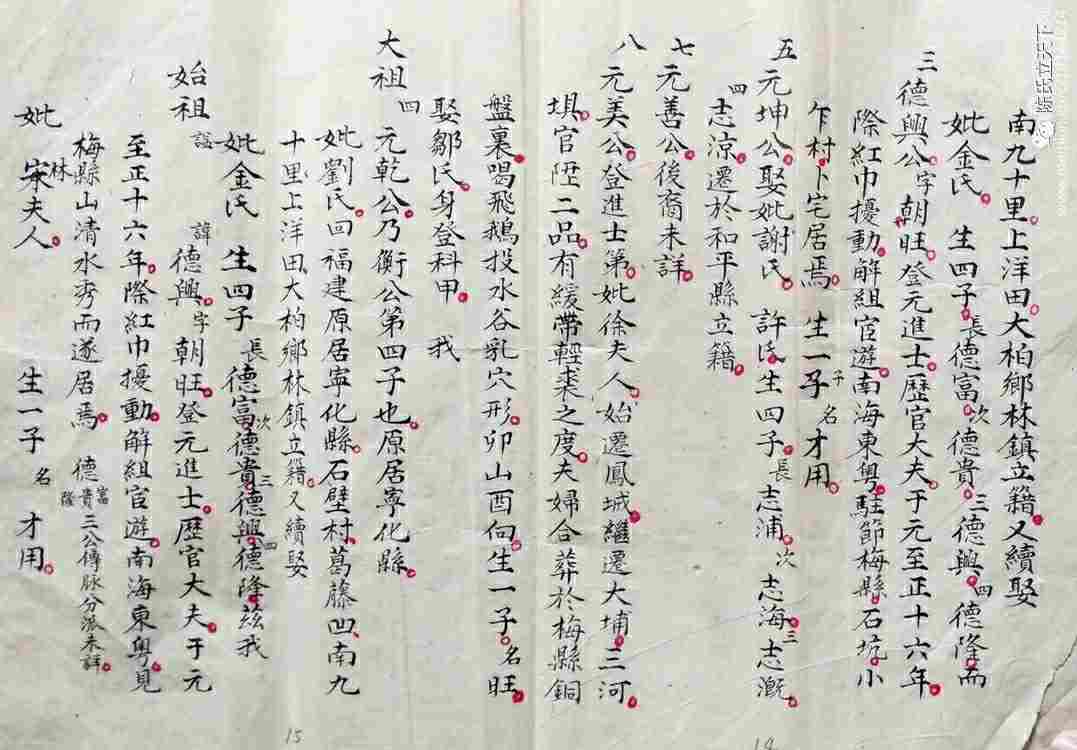 南九十里。上洋田。大柏鄉林鎮立籍。又續娶
妣金氏。 生四子。長德富。次德貴。三德興。四德隆。而
三 德興公。字朝旺。登元進士。歷官大夫。于元至正十六年。
際紅巾擾動。解組宦遊。南海東粵。駐節梅縣。石坑。小
乍村。卜宅居焉。 生一子 名才用。
五 元坤公。娶妣謝氏。 許氏。生四子。長志浦。次志海。三志溉。
四志涼。遷於和平縣立籍。
七 元善公。後裔未詳。
八 元美公。登進士第。妣徐夫人。始遷鳳城。繼遷大埔。三河
埧。官陞二品。有緩帶輕裘之度。夫婦合葬於梅縣銅
盤裏。喝飛鵝投水谷乳穴形。卯山酉向。生一子。名旺
娶鄒氏。身登科甲。 我
大祖 四 元乾公。乃衡公第四子也。原居寧化縣。
妣劉氏。回福建原居寧化縣。石壁村。葛藤凹。南九
十里上洋田。大柏鄉林鎮立籍。又續娶
妣金氏 生四子 長德富。次德貴。三德興。四德隆。茲我
始祖 諡 諱德興。字朝旺。登元進士。歷官大夫。于元
至正十六年。際紅巾擾動。解組宦遊。南海東粵。見
梅縣山清水秀而遂居焉。 德富貴隆三公傳脉分派未詳。
妣 林宋夫人。 生一子 名 才用。
15
14
陳氏立天下